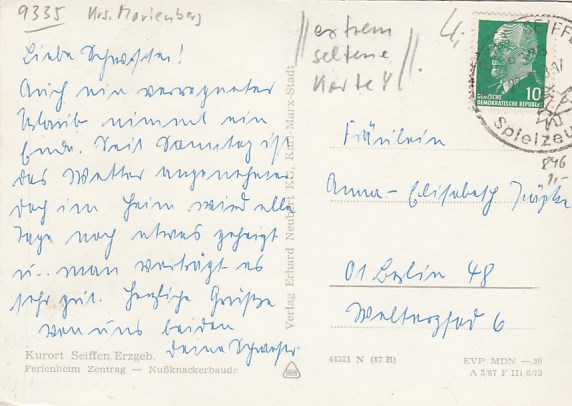 9335 Krs. Marienberg
"extrem
seltene
Karte!"
Liebe Schwester!
Auch ein verregneter
Urlaub nimmt ein
Ende. Seit Sonntag ist
das Wetter angenehmer
doch im Heim wird alle
Tage noch etwas geheizt
u. man verträgt es
sehr gut. Herzliche Grüße
von uns beiden
Deine Schwester
Kurort Seiffen Erzgeb.
Ferienheim Zentrag — Nußknackerbaude
Verlag Erhard Neubert KG, Karl-Marx-Stadt
SEIFFE
Spielzeu
10
DEUTSCHE
DEMOKRATISCHE REPUBLIK
Fräulein
Anna-Elisabeth
01 Berlin 48
Welterpfad 6
44521 N (87 B)
EVP MDN —,20
A 3/67 F III 6/73